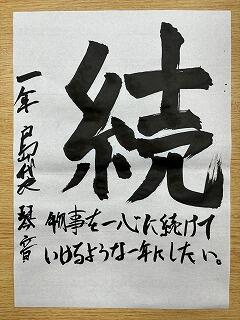 続
物事を一心に続けて
いけるような一年にしたい。
一年 島袋 琴音